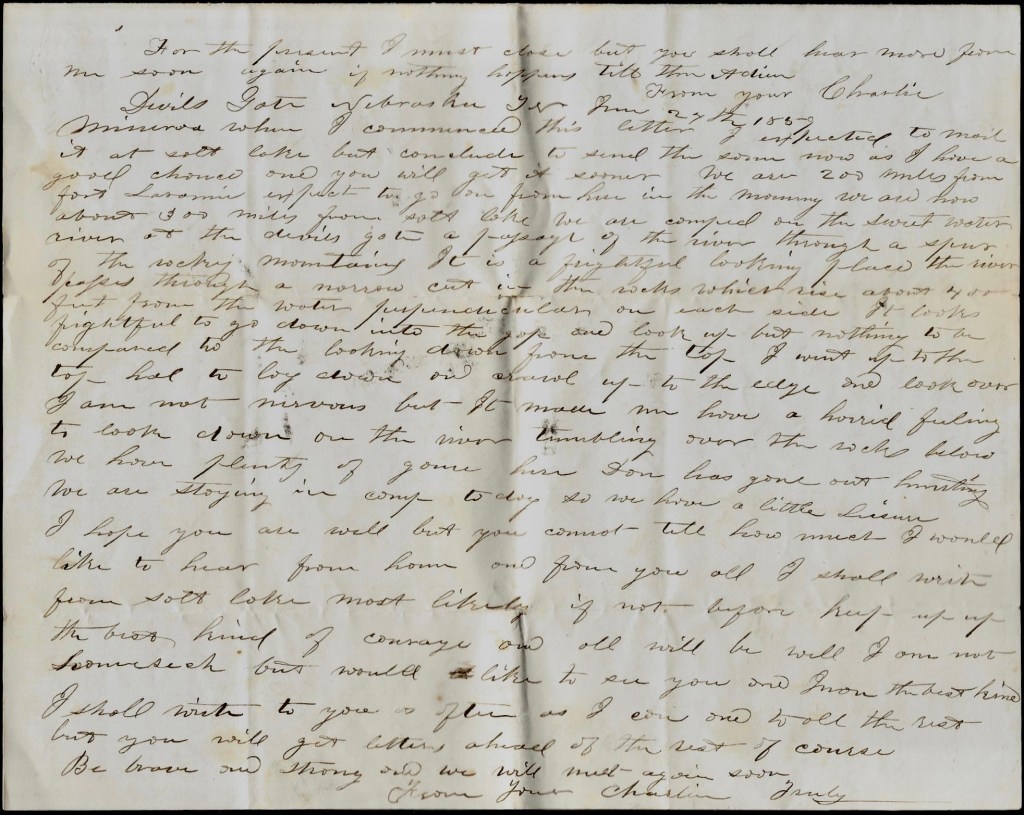 For the present I must close but you shall hear more from
me soon again if nothing happens till then Adieu
From your Charlie
Devils Gate Nebraska Ter June 27th 1859
Minerva when I commenced this letter I expected to mail
it at salt lake but conclude to send the same now as I have a
good chance and you will get it sooner We are 200 miles from
fort Laramie expect to go on from here in the morning we are now
about 300 miles from salt lake We are camped on the sweet water
river at the devils gate a passage of the river through a spur
of the rocky mountains It is a frightful looking place the river
passes through a narrow cut in the rocks which rise about 400
feet from the water perpendicular on each side It looks
frightful to go down into the gap and look up but nothing to be
compared to the looking down from the top I went up to the
top had to lay down and crawl up to the edge and look over
I am not nervous but It made me have a horrid feeling
to look down on the river tumbling over the rocks below
We have plenty of game here Don has gone out hunting
We are staying in camp to day so we have a little Liesure
I hope you are well but you cannot tell how much I would
like to hear from home and from you all I shall write
from salt lake most likely if not before keep up up
the best kind of courage and all will be well I am not
homesick but would like to see you and the best kind
I shall write to you as often as I can and to all the rest
but you will get letters ahead of the rest of course
Be brave and strong and we will meet again soon
From Your Charlie Truly